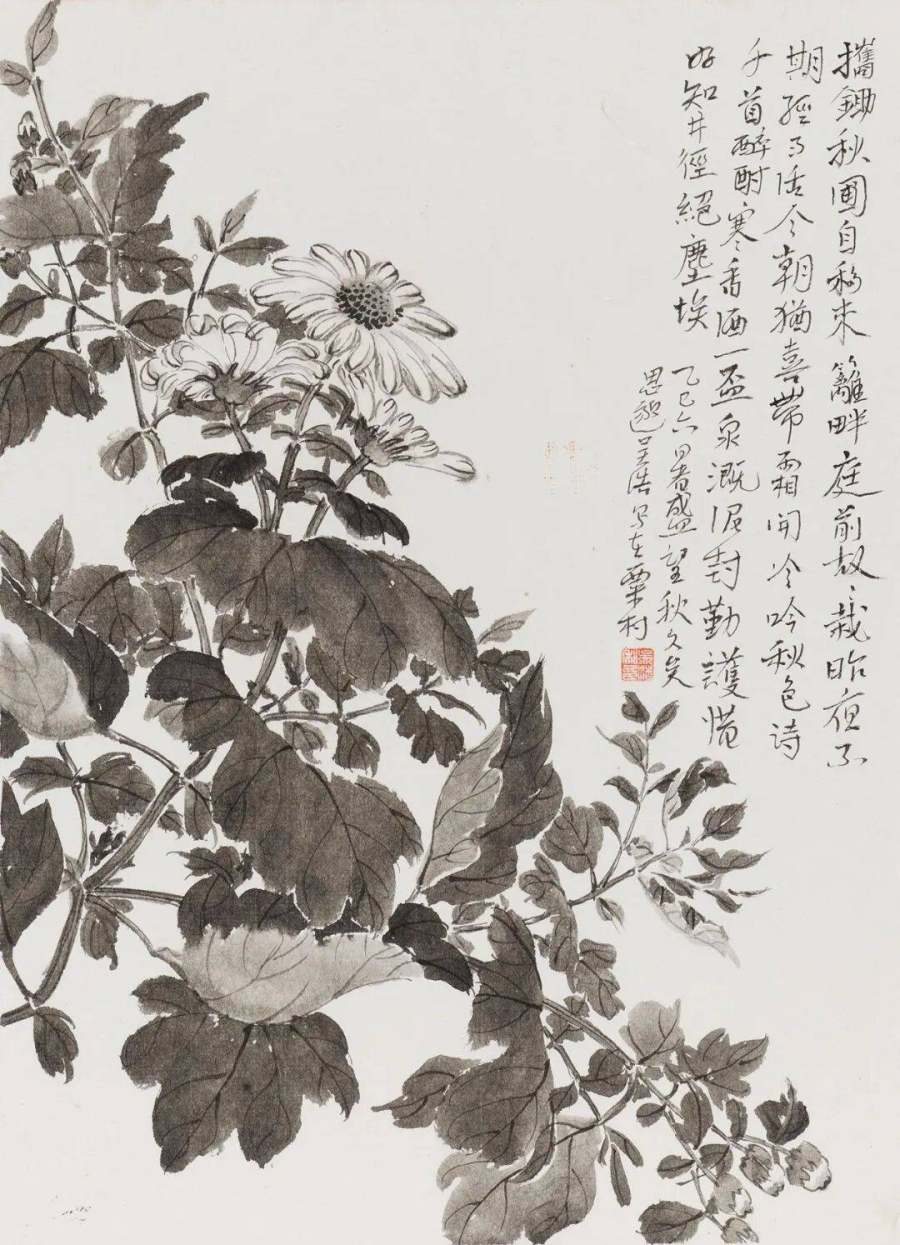 攜鋤秋圃自移來籬畔庭前故〻栽昨夜不
期經雨活今朝猶喜帶霜開冷吟秋色诗
千首醉酹寒香酒一盃泉溉泥封勤護惜
好知井徑絕塵埃
乙巳六月暑盛望秋久矣
吴浩写在粟村